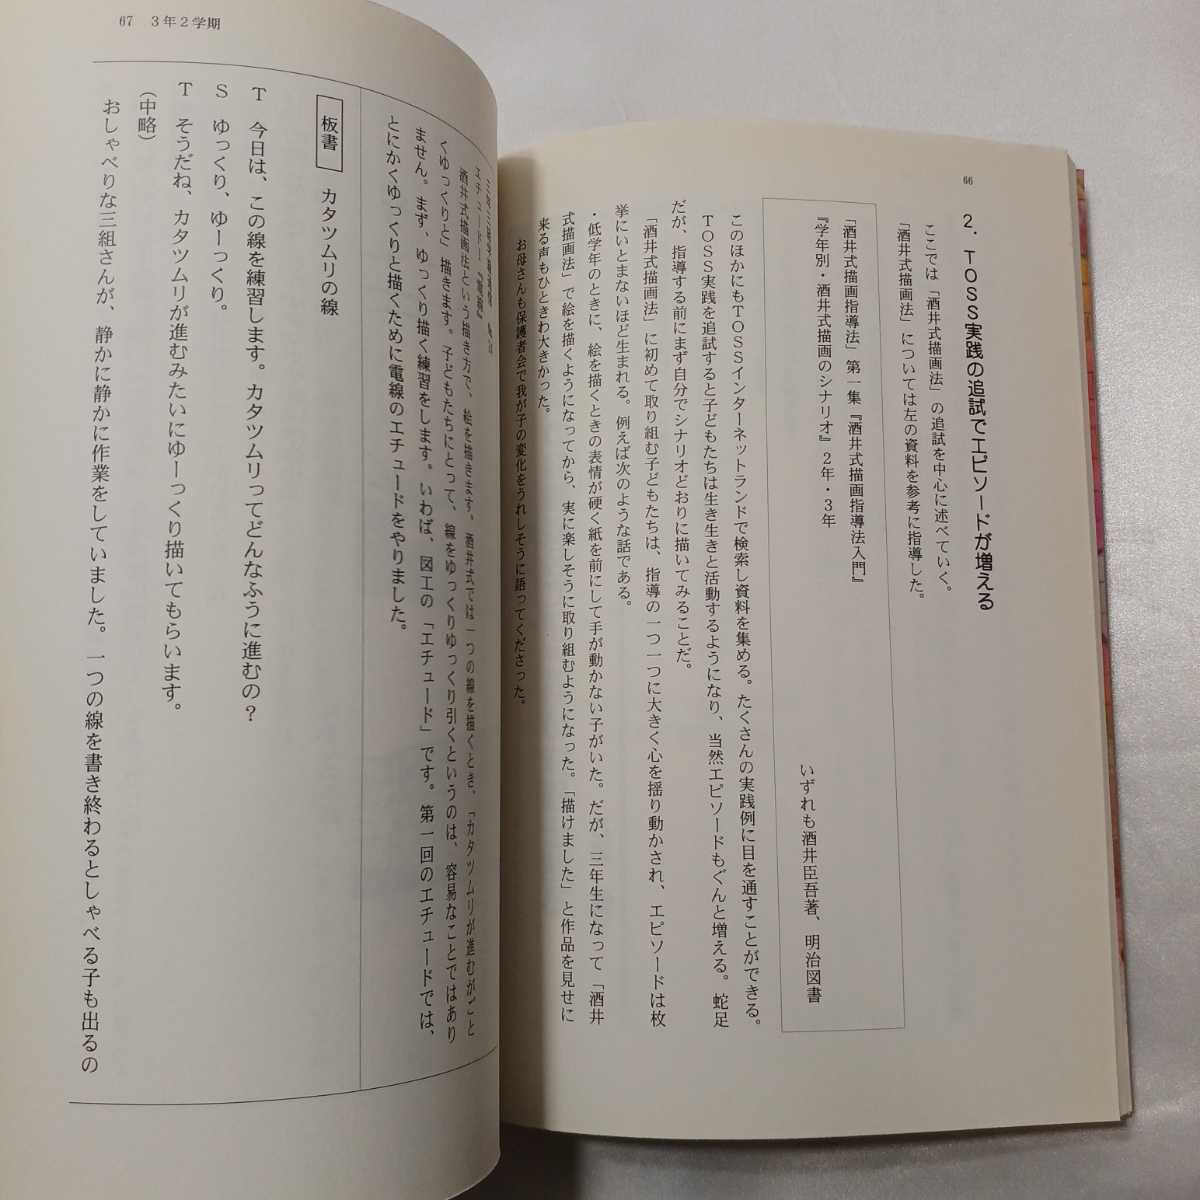 66
2．TOSS実践の追試でエピソードが増える
ここでは「酒井式描画法」の追試を中心に述べていく。
「酒井式描画法」については左の資料を参考に指導した。
「酒井式描画指導法」第一集『酒井式描画指導法入門』
『学年別・酒井式描画のシナリオ』2年・3年
いずれも酒井臣吾著、明治図書
このほかにもTOSSインターネットランドで検索し資料を集める。たくさんの実践例に目を通すことができる。
TOSS実践を追試すると子どもたちは生き生きと活動するようになり、当然エピソードもぐんと増える。蛇足
だが、指導する前にまず自分でシナリオどおりに描いてみることだ。
「酒井式描画法」に初めて取り組む子どもたちは、指導の一つ一つに大きく心を揺り動かされ、エピソードは枚
挙にいとまないほど生まれる。例えば次のような話である。
・低学年のときに、絵を描くときの表情が硬く紙を前にして手が動かない子がいた。だが、三年生になって「酒井
式描画法」で絵を描くようになってから、実に楽しそうに取り組むようになった。「描けました」と作品を見せに
来る声もひときわ大きかった。
お母さんも保護者会で我が子の変化をうれしそうに語ってくださった。
67　3年2学期
エチュード『電線』
酒井式描画法という描き方で、絵を描きます。酒井式では一つの線を描くとき、「カタツムリが進むがごと
くゆっくりと」描きます。子どもたちにとって、線をゆっくりゆっくり引くというのは、容易なことではあり
ません。まず、ゆっくり描く練習をします。いわば、図工の「エチュード」です。第一回のエチュードでは、
とにかくゆっくりと描くために電線のエチュードをやりました。
板書　カタツムリの線
T　今日は、この線を練習します。カタツムリってどんなふうに進むの？
S　ゆっくり、ゆーっくり。
T　そうだね、カタツムリが進むみたいにゆーっくり描いてもらいます。
（中略）
おしゃべりな三組さんが、静かに静かに作業をしていました。一つの線を書き終わるとしゃべる子も出るの